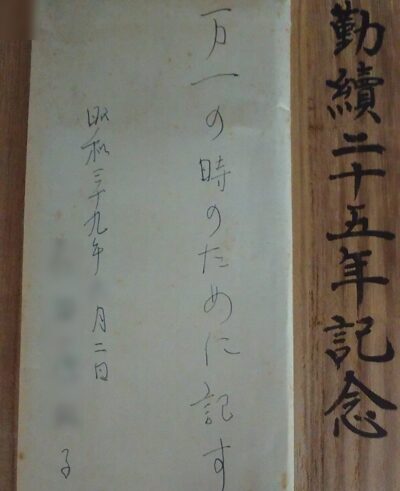 勤續二十五年記念
万一の時のために記す
昭和三十九年 月二日
子